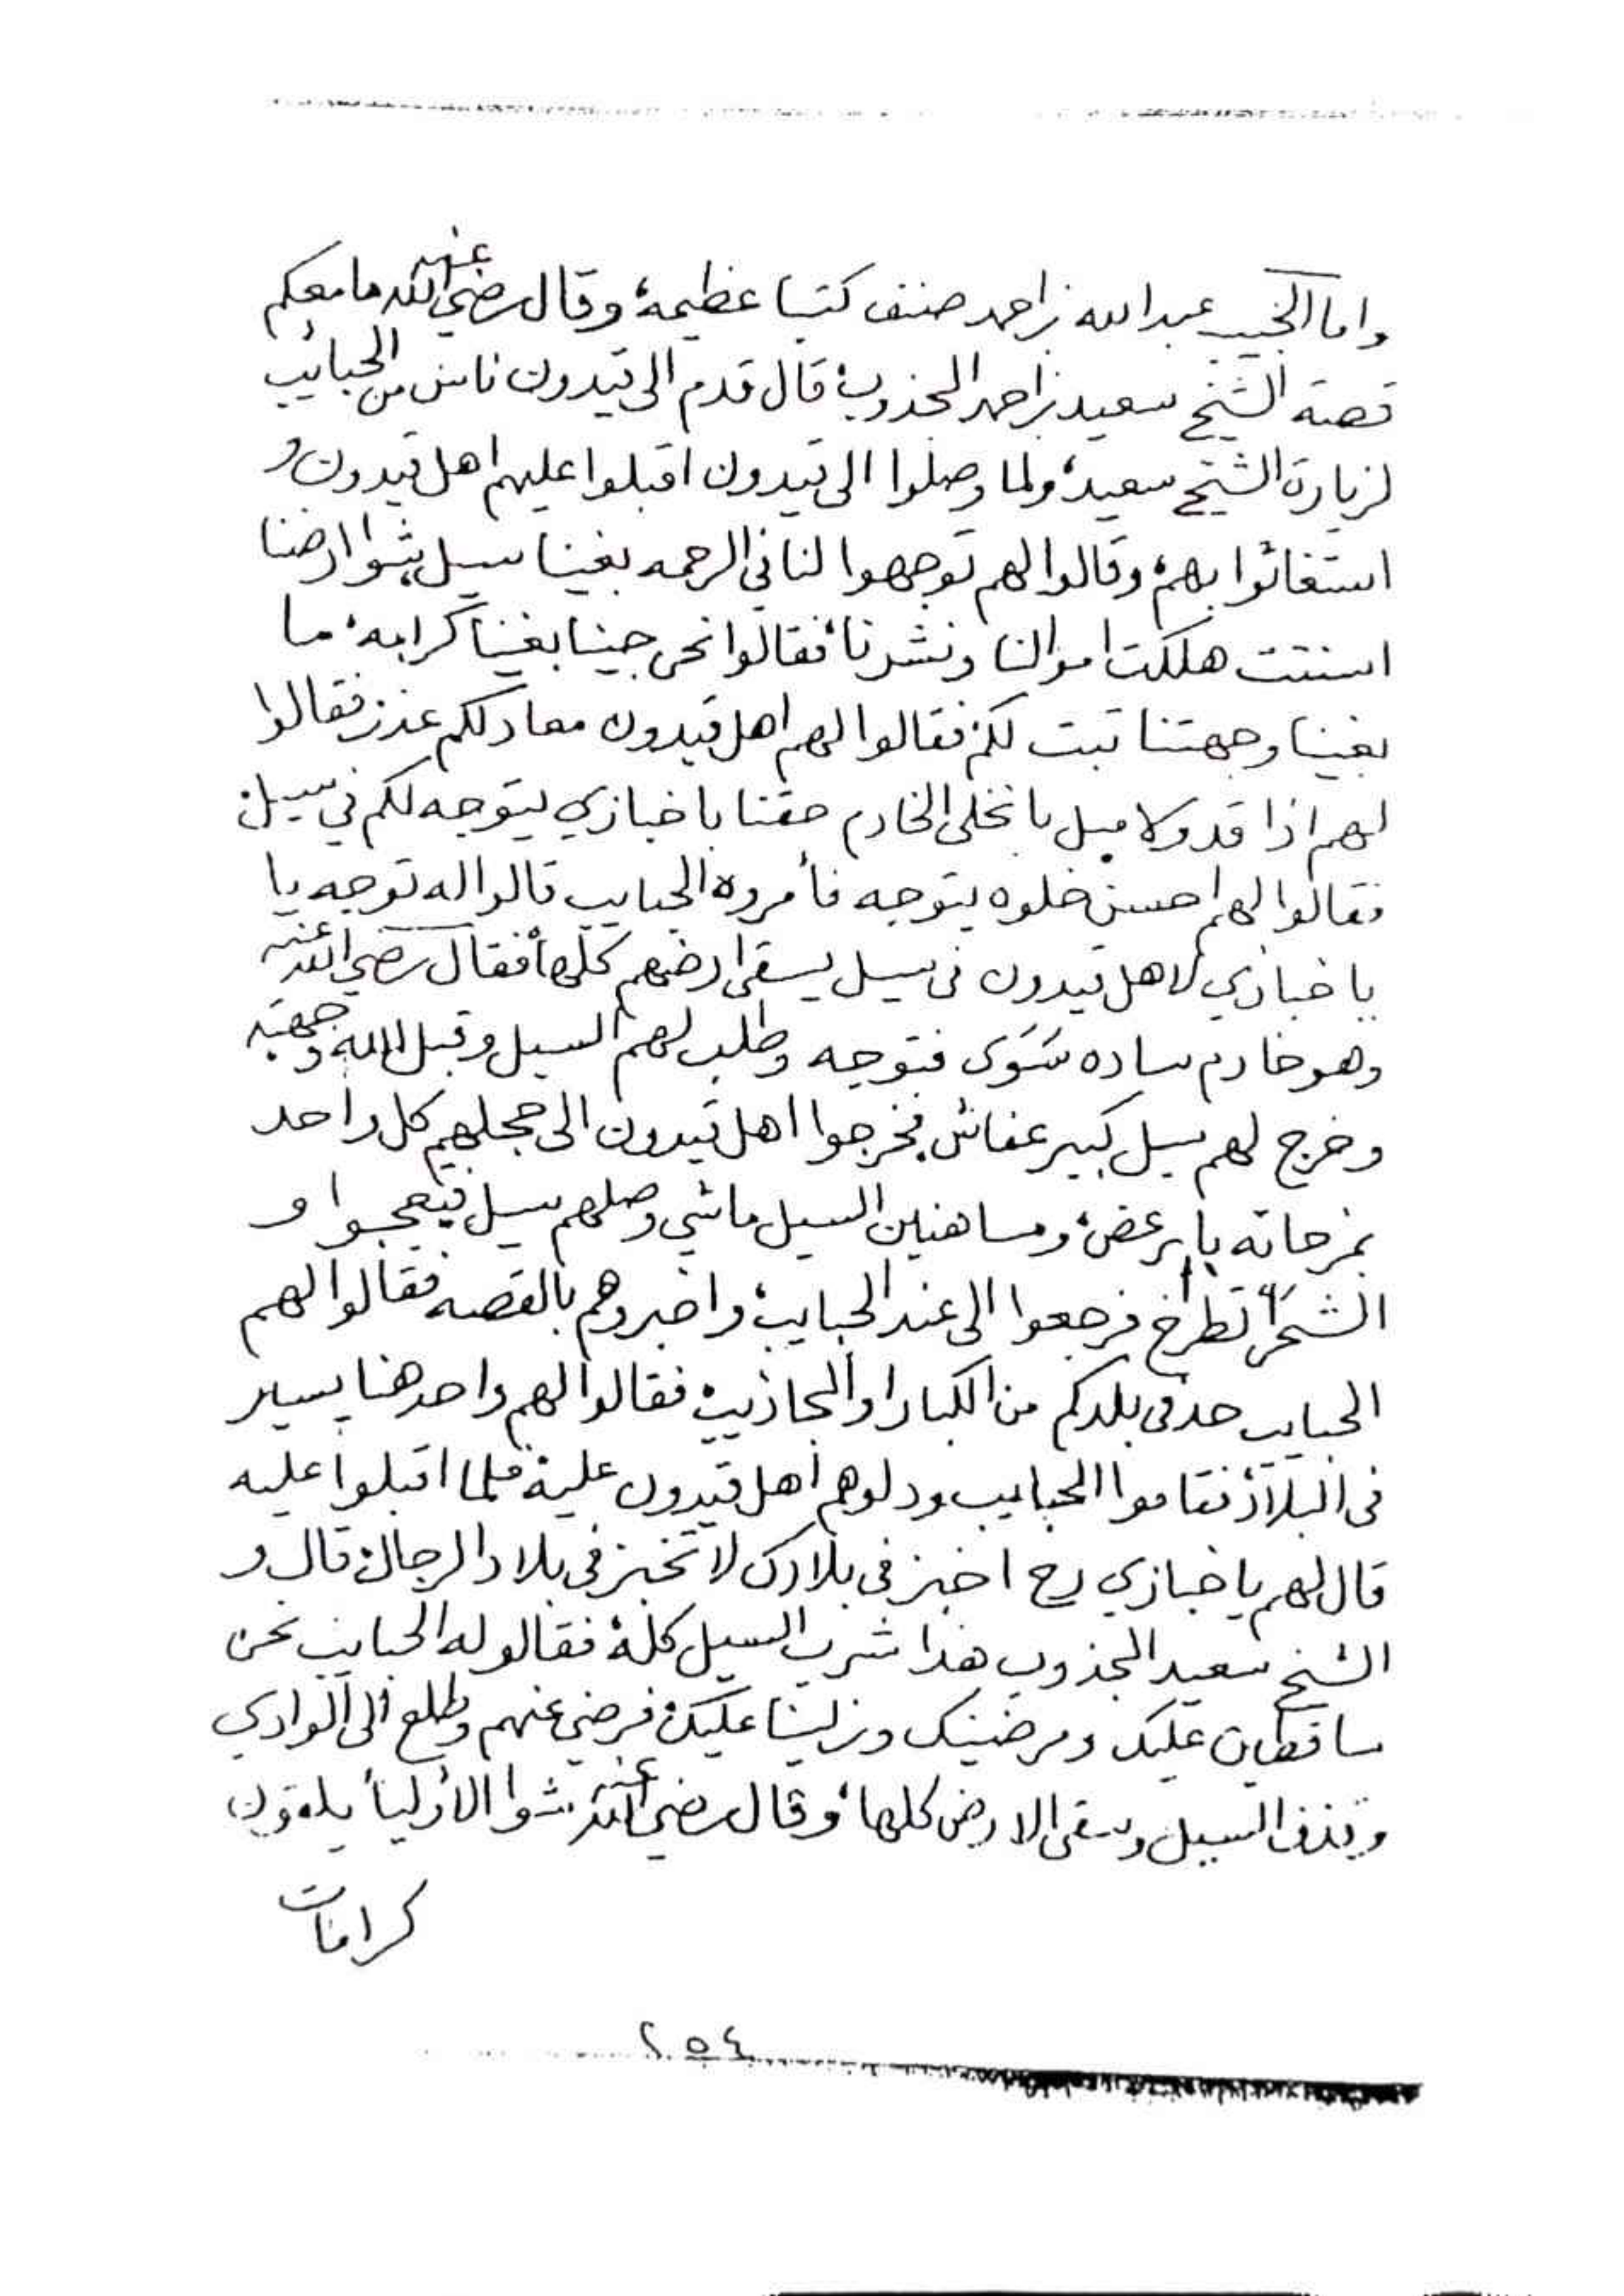 واما الحبيب عبدالله بن احمد صنف كتبا عظيمة، وقال رضي الله عنه ما معكم
قصة الشيخ سعيد بن احمد المجذوب، قال قدم الى قيدون ناس من الحبائب
لزيارة الشيخ سعيد، ولما وصلوا الى قيدون اقبلوا عليهم اهل قيدون و
استغاثوا بهم، وقالوا لهم توجهوا لنا في الرحمه بغينا سيل شوا ارضنا
اسنتت هلكت اموالنا ونشرنا، فقالوا نحن جينا بغينا كرامة، ما
بغينا وجهتنا تبت لكم، فقالوا لهم اهل قيدون معاد لكم عذر فقالوا
لهم اذا قد ولا ميل با نخلي الخادم حقنا باخبازي يتوجه لكم في سيل،
فقالوا لهم احسن خلوه يتوجه فأمروه الحبايب قالوا له توجه يا
باخبازي لاهل قيدون في سيل يسقي ارضهم كلها، فقال رضي الله عنه
وهو خادم ساده سَوَى فتوجه وطلب لهم السيل وقبل الله وجهته
وخرج لهم سيل كبير عفاش، فخرجوا اهل قيدون الى حجلهم كل واحد
بمرحاته با يرعض، ومساهنين السيل ماشي وصلهم سيل فتعجبوا و
الشحرأ تطرخ فرجعوا الى عند الحبايب، واخبروهم بالقصه فقالوا لهم
الحبايب حد في بلدكم من الكبار او المجاذيب، فقالوا لهم واحد هنا يسير
في البلاد، فقاموا الحبايب ودلوهم اهل قيدون عليه، فلما اقبلوا عليه
قال لهم باخبازي رح اخبز في بلادك لا تخبز في بلاد الرجال، قال و
الشيخ سعيد المجذوب هذا شرب السيل كله، فقالو له الحبايب نحن
ساقطين عليك ومرضينك ونزلينا عليك، فرضي عنهم وطلع الى الوادي
وقذف السيل وسقى الارض كلها، وقال رضي الله عنه شوا الأوليأ يلقون
كرامات
٢٥٤